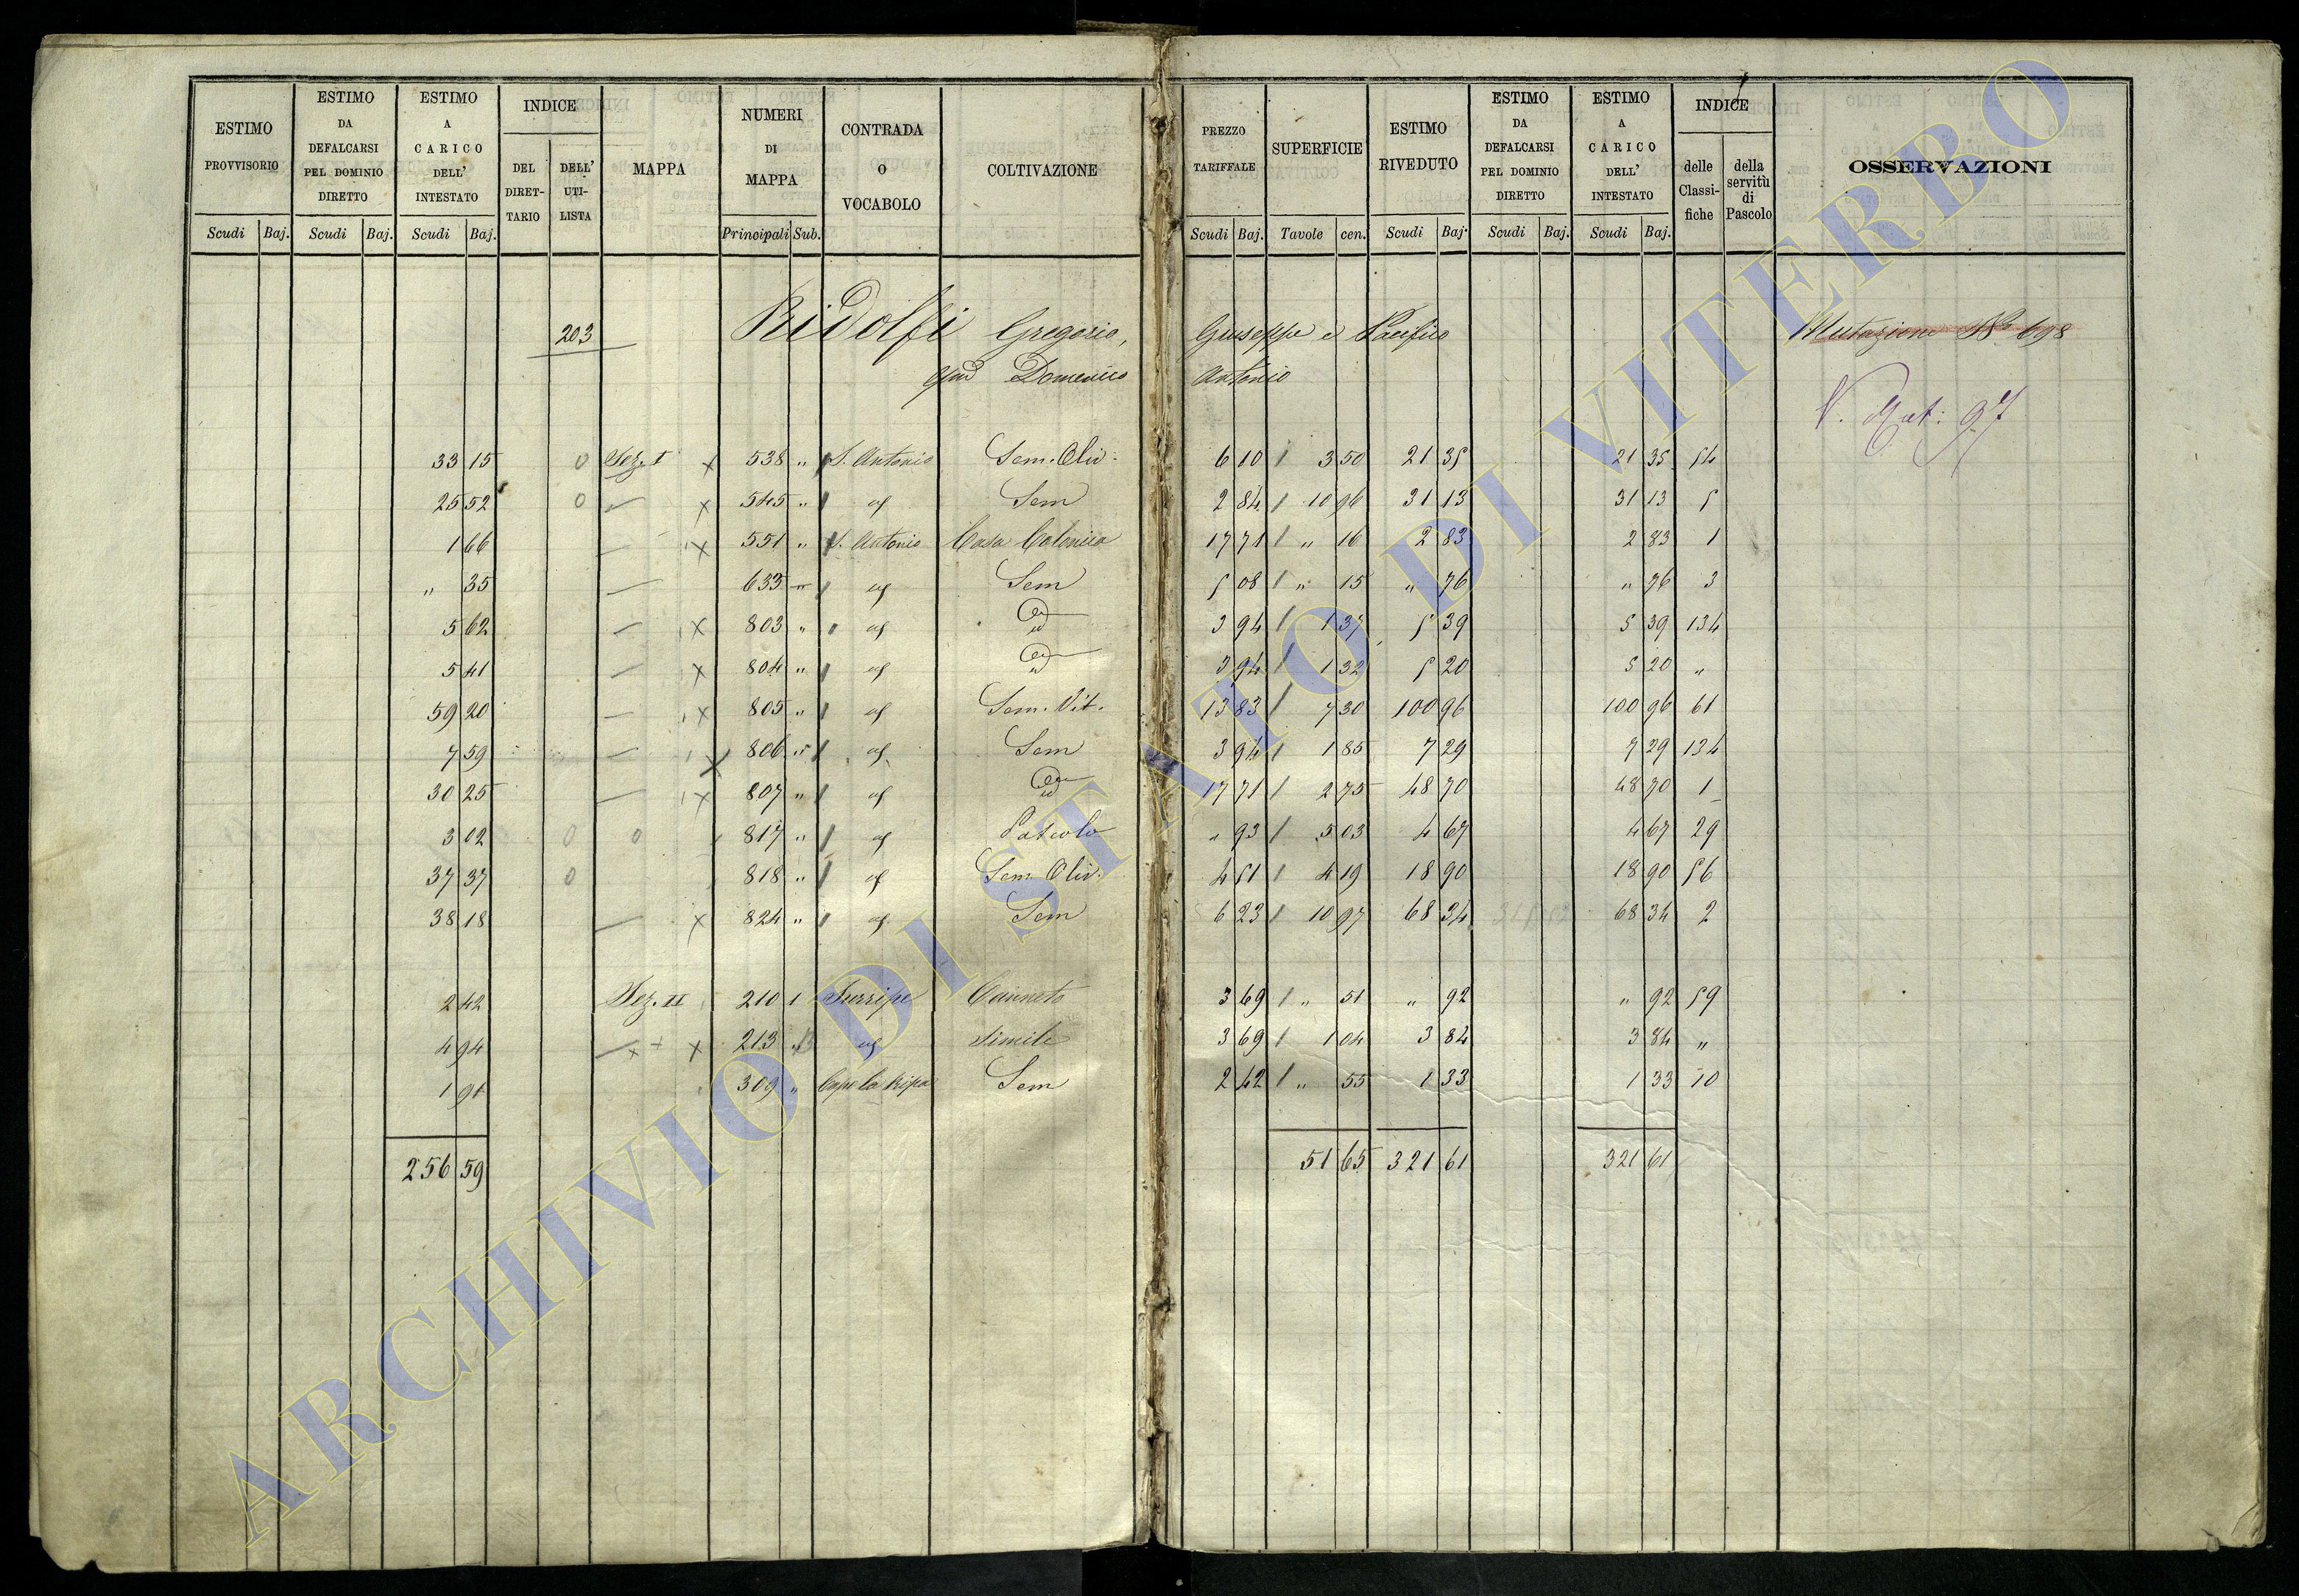 ESTIMO PROVVISORIO | ESTIMO DA DEFALCARSI PEL DOMINIO DIRETTO | ESTIMO A CARICO DELL' INTESTATO | INDICE DEL DIRETTARIO | DELL' UTILISTA | MAPPA | NUMERI DI MAPPA | CONTRADA O VOCABOLO | COLTIVAZIONE | PREZZO TARIFFALE | SUPERFICIE | ESTIMO RIVEDUTO | ESTIMO DA DEFALCARSI PEL DOMINIO DIRETTO | ESTIMO A CARICO DELL' INTESTATO | INDICE delle Classifiche | della servitù di Pascolo | OSSERVAZIONI
Scudi | Baj. | Scudi | Baj. | Scudi | Baj. | Principali | Sub. | Scudi | Baj. | Tavole | cen. | Scudi | Baj. | Scudi | Baj. | Scudi | Baj.
203 Ridolfi Gregorio, Giuseppe e Pacifico Mutazione No 698
qud Domenico Antonio
V. Mut: 97
33 15 0 Sez. I x 538 " S. Antonio Sem. Oliv. 6 10 3 50 21 35 21 35 54
25 52 0 x 545 " Sem 2 84 10 96 31 13 31 13 5
1 66 x 551 " S. Antonio Casa Colonica 17 71 " 16 2 83 2 83 1
" 35 633 " Sem 5 08 " 15 " 76 " 76 3
5 62 x 803 " id 3 94 1 37 5 39 5 39 134
5 41 x 804 " id 3 94 1 32 5 20 5 20 "
59 20 x 805 " Sem. Vit. 13 83 7 30 100 96 100 96 61
7 59 x 806 " Sem 3 94 1 85 7 29 7 29 134
30 25 x 807 " id 17 71 2 75 48 70 48 70 1
3 02 0 0 817 " Pascolo " 93 5 03 4 67 4 67 29
37 37 0 818 " Sem. Oliv. 4 51 4 19 18 90 18 90 56
38 18 x 824 " Sem 6 23 10 97 68 34 68 34 2
2 42 Sez. II 210 1 Surripe Canneto 3 69 " 51 " 92 " 92 59
4 94 x 213 Simile 3 69 1 04 3 84 3 84 "
1 90 309 " Capo la Ripa Sem 2 42 " 55 1 33 1 33 10
256 59 51 65 321 61 321 61
ARCHIVIO DI STATO DI VITERBO